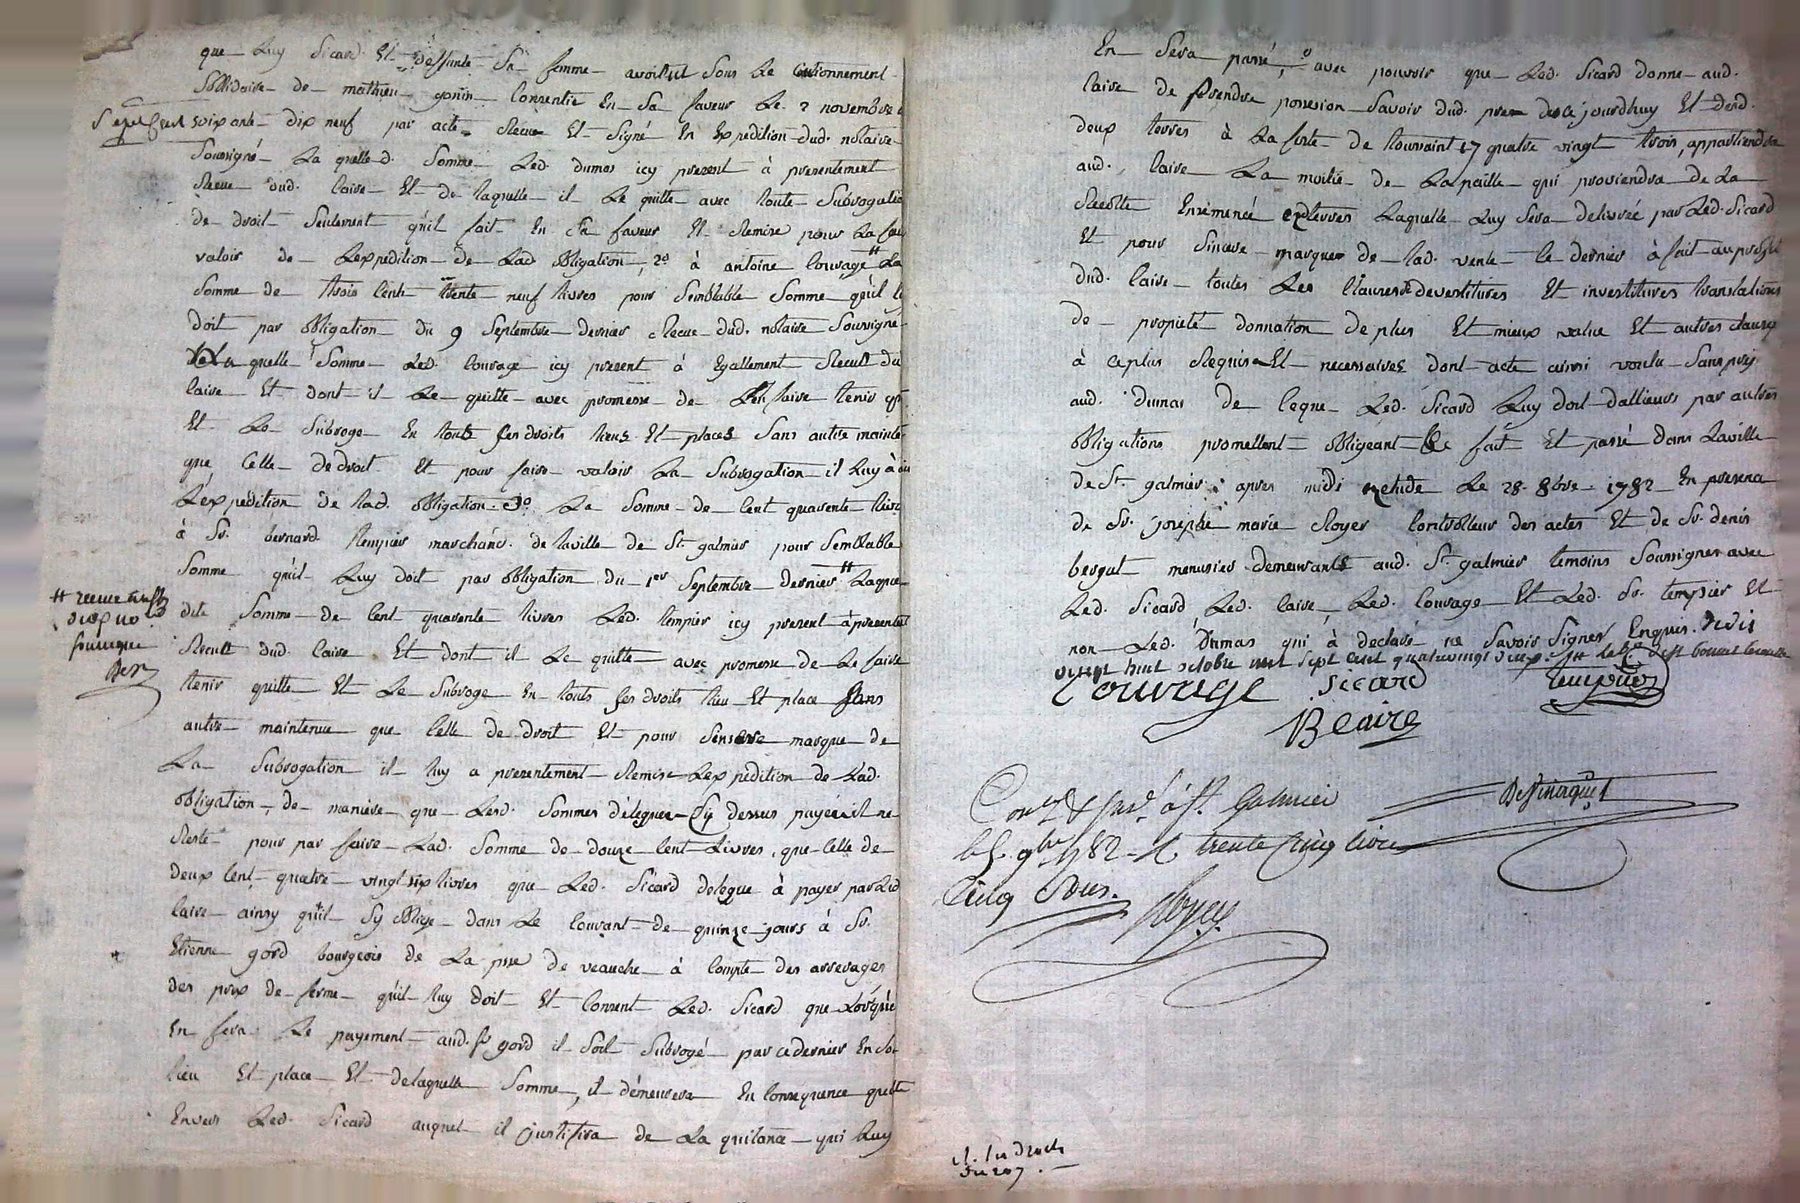 que Luy Sicard Et deffunte Sa femme avoitut Sous Le Cautionnement
Sollidaire de mathieu gonin Consentie En Sa faveur Le 2 novembre
Sept Cent soixante dix neuf par acte Recue Et Signé En Expedition dud. notaire
Soussigné La quelle d. Somme Led. dumas icy present à presentement
Recue dud. Caire Et de laquelle il Le quitte avec toute Subrogation
de droit Seulement qu'il fait En Sa faveur Et Remise pour La faire
valoir de Lexpedition de Lad obligation, 2° à antoine Couvage # La
Somme de trois Cent trente neuf livres pour Semblable Somme qu'il luy
doit par obligation du 9 Septembre dernier Recue dud. notaire Soussigné
de La quelle Somme Led. Couvage icy present à Egallement Recult du
Caire Et dont il Le quitte avec promesse de L'en faire tenir
Et Le Subroge En touts ses droits lieus Et places Sans autre mainte
que Celle de droit Et pour faire valoir La Subrogation il Luy à
L'expedition de Lad. obligation. 3° La Somme de Cent quarente livres
à Sr. bernard tempier marchand de laville de St. galmier pour Semblable
Somme qu'il Luy doit par obligation du 1er Septembre dernier # Laque
# recue
soussigné
dite Somme de Cent quarente livres Led. tempier icy present à presentement
Recult dud. Caire Et dont il Le quitte avec promesse de Le faire
tenir quitte Et Le Subroge En touts ses droits lieu Et place Sans
autre maintenue que Celle de droit Et pour Sincere marque de
La Subrogation il Luy a presentement Remise Lexpédition de Lad.
obligation, de maniere que Lesd. Sommes déleguer Cy dessus payée il ne
Reste pour par faire Lad. Somme de douze Cent Livres, que Celle de
deux Cent quatre vingt six livres que Led. Sicard delegue à payer par Led
Caire ainsy qu'il Sy oblige dans Le Courant de quinze jours à Sr.
Etienne gord bourgeois de La psse de veauche à Compte des arrerages
des prix de ferme qu'il Luy doit Et Consent Led. Sicard que Lorsque
En fera Le payement aud. Sr gord il Soit Subrogé par ce dernier En Son
lieu Et place Et delaquelle Somme, il démeurera En Consequence quitte
Envers Led. Sicard auquel il justifira de La quitance qui Luy
En Sera passé, avec pouvoir que Led. Sicard donne aud.
Caire de prendre possesion Savoir dud. pre des ce jourdhuy Et desd.
deux terres à La feste de toussaint 17 quatre vingt trois, appartiendra
aud. Caire La moitié de La paille qui proviendra de La
Recolte Laquelle Luy Sera delivrée par Led. Sicard
Et pour Sincere marque de Lad. vente Le dernier à fait au profit
dud. Caire toutes Les Clauses devestitures Et investitures translations
de propieté donnation de plus Et mieux value Et autres clauses
à ce plus Requise Et necessaires dont acte ainsi voulu Sans prej
aud. Dumas de Ceque Led. Sicard Luy doit dallieurs par autres
obligations promettent obligeant &c fait Et passé dans Laville
de St galmier apres midi Le 28 8bre 1782 En presence
de Sr. josephe marie Royer Controlleur des actes Et de Sr. denis
bergat menusier demeurants aud. St galmier temoins Soussignes avec
Led. Sicard Led. Caire, Led. Couvage Et Led. Sr. tempier Et
non Led. Dumas qui à declaré ne Savoir Signer Enquis.
vingt huit octobre mil Sept cent quatrevingt deux
Couvage Sicard tempier
B Caire
Conlé & Insé à St. Galmier
le 5. 9bre 1782 R trente Cinq livres
Cinq Sous.
Royer